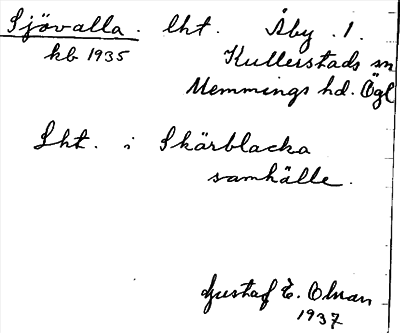 Sjövalla. lht. Åby .1.
kb 1935 Kullerstads sn
Memmings hd. Ögl
Lht. i Skärblacka
samhälle.
Gustaf E. Olvan
1937